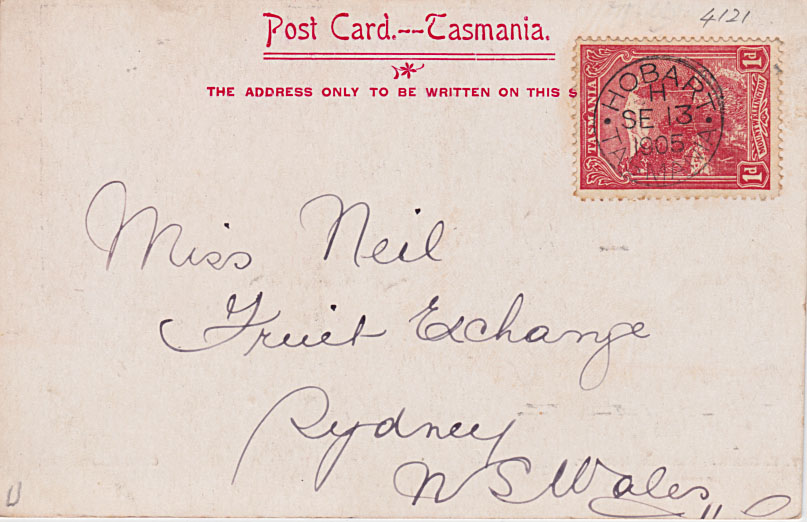 4121
Post Card.--Tasmania.
THE ADDRESS ONLY TO BE WRITTEN ON THIS S
1d
TASMANIA
MOUNT WELLINGTON
1d
HOBART
H
SE 13
1905
Miss Neil
Fruit Exchange
Sydney
N S Wales